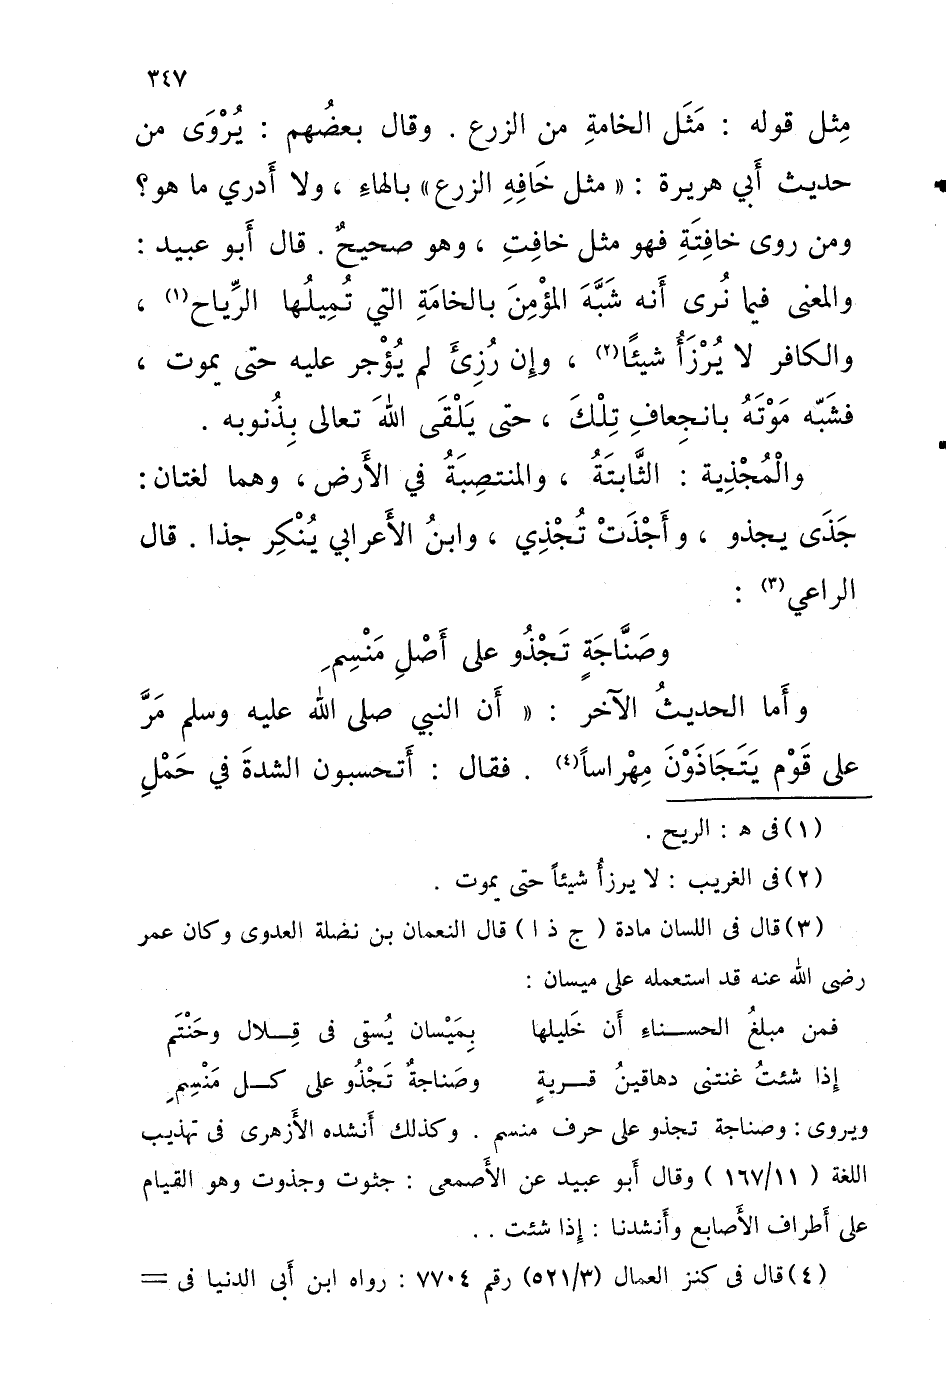 ٣٤٧
مِثل قوله : مَثَل الخامةِ من الزرع . وقال بعضُهم : يُرْوَى من
حديث أَبي هريرة : « مثل خَافِهِ الزرع » بالهاءِ ، ولا أَدري ما هو؟
ومن روى خافِتَةِ فهو مثل خافِتِ ، وهو صحيحٌ . قال أَبو عبيد :
والمعنى فيما نُرى أَنه شَبَّهَ المؤْمِنَ بالخامَةِ التي تُمِيلُها الرِّياح(١) ،
والكافر لا يُرْزَأُ شيئًا(٢) ، وإن رُزِئَ لم يُؤْجر عليه حتى يموت ،
فشَبّه مَوْتَهُ بانجِعافِ تِلْكَ ، حتى يَلْقَى اللهَ تعالى بِذُنوبه .
والْمُجْذِية : الثَّابتَةُ ، والمنتصِبَةُ في الأَرض ، وهما لغتان :
جَذَى يجذو ، وأَجْذَتْ تُجْذِي ، وابنُ الأَعرابي يُنْكِر جذا . قال
الراعي(٣) :
وصَنَّاجَةٍ تَجْذُو على أَصْلِ مَنْسِمِ
وأَما الحديثُ الآخر : « أَن النبي صلى الله عليه وسلم مَرَّ
على قَوْم يَتَجَاذَوْنَ مِهْراساً(٤) . فقال : أَتحسبون الشدةَ في حَمْلِ
(١) فى ه : الريح .
(٢) فى الغريب : لا يرزأُ شيئاً حتى يموت .
(٣) قال فى اللسان مادة ( ج ذ ا ) قال النعمان بن نضلة العدوى وكان عمر
رضى الله عنه قد استعمله على ميسان :
فمن مبلغُ الحســناءِ أَن خَليلها بِمَيْسان يُسقى فى قِــلال وحَنْتَم
إذا شئتُ غنتنى دهاقينُ قــريةٍ وصَناجةٌ تَجْذُو على كــل مَنْسِمِ
ويروى : وصناجة تجذو على حرف منسم . وكذلك أَنشده الأَزهرى فى تهذيب
اللغة ( ١٦٧/١١ ) وقال أَبو عبيد عن الأَصمعى : جثوت وجذوت وهو القيام
على أَطراف الأَصابع وأَنشدنا : إذا شئت . .
(٤) قال فى كنز العمال (٥٢١/٣) رقم ٧٧٠٤ : رواه ابن أَبى الدنيا فى =